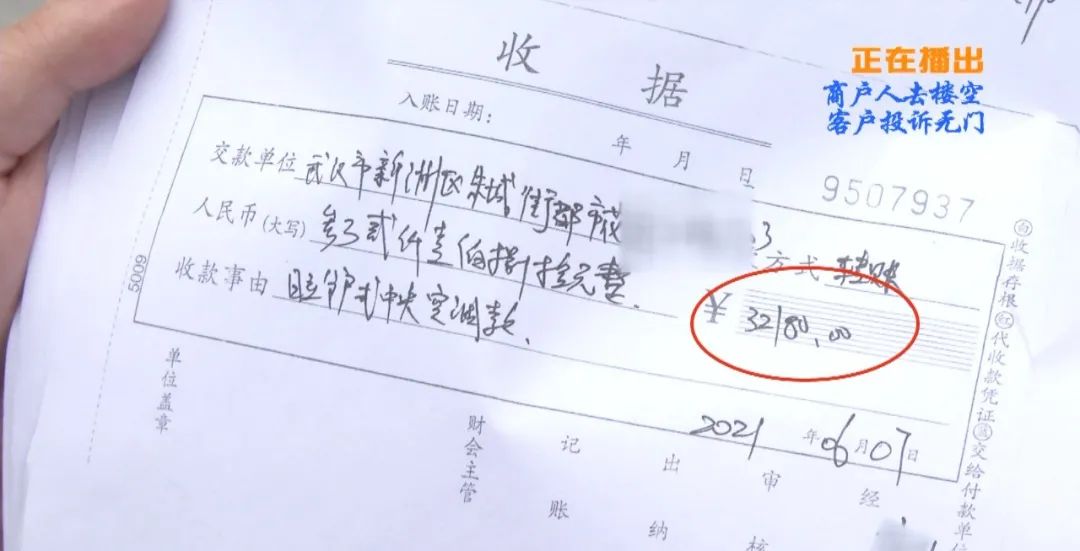 正在播出
商户人去楼空
客户投诉无门
收 据
入账日期: 年 月 日
9507937
交款单位 武汉市新洲区朱城街都市
方式 转账
人民币(大写) 叁万贰仟壹佰捌拾元整
¥ 32180.00
收款事由 日立家式中央空调款
2021年06月07日
单位盖章 财会主管 记账 出纳 审核 经
白收据存根 红代收款凭证 蓝交给付款单位
5009